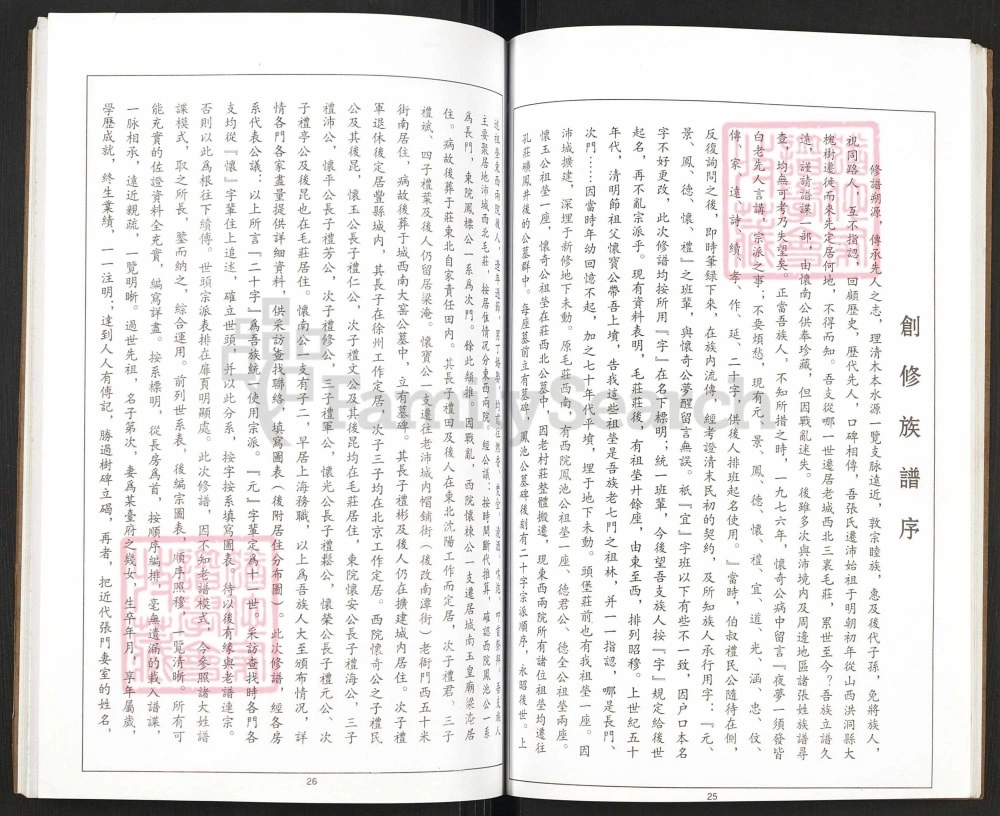 創修族譜序
修譜朔源，傳承先人之志，理清木本水源一覽支脉遠近，敦宗睦族，惠及後代子孫，免將族人，
視同路人，互不指認，回顧歷史，歷代先人，口碑相傳，吾張氏遷沛始祖于明朝初年從山西洪洞縣大
槐樹遷徙而來先定居何地，不得而知。吾支從哪一世遷居老城西北三裏毛莊，累世至今？吾族立譜久
遠，謹請譜諜一部，由懷南公供奉珍藏，但因戰亂迷失。後雖多次與沛境内及周邊地區諸張姓族譜尋
查，均無可考乃失望矣。正當吾族人，不知所措之時，一九七六年，懷奇公病中留言『夜夢一須發皆
白老先人言講，宗派之事；不要煩愁，現有元、景、鳳、德、懷、禮、宜、道、光、涵、忠、伩、
傳、家、遠、詩、續、孝、作、延、二十字，供後人排班起名使用。』當時，伯叔禮民公隨待在側，
反復詢問之後，即時筆録下來，在族内流傳，經考證清末民初的契約，及所知族人承行用字：『元、
景、鳳、德、懷、禮』之班輩，與懷奇公夢醒留言無誤。祇『宜』字班以下有些不一致，因户口本名
字不好更改，此次修譜均按所用『字』在名下標明；統一班輩，今後望吾支族人按『字』規定給後世
起名，再不亂宗派乎。現有資料表明，毛莊莊後，有祖塋廾餘座，由東至西，排列昭穆。上世紀五十
年代，清明節祖父懷寶公帶吾上墳，告我這些祖塋是吾族老七門之祖林，并一一指認，哪是長門、
次門……因當時年幼回憶不起，加之七十年代平墳，埋于地下未動。頭堡莊前也有我祖塋一座。因
沛城擴建，深埋于新修地下未動。原毛莊西南，有西院鳳池公祖塋一座、德君公、德全公祖塋兩座。
懷玉公祖塋一座，懷奇公祖塋在莊西北公墓，因老村莊整體搬遷，現東西兩院所有諸位祖塋均遷往
孔莊礦鳳井後的公墓群中。每座墓前立有墓碑，鳳池公墓碑後刻有二十字宗派順序，永昭後世。上
25
主要聚居地沛城西北毛莊，按居住情况分東西兩院，經公議；按時間斷代推算，確認西院鳳池公一系
爲長門，東院鳳樓公一系爲次門。餘此類推。因戰亂，西院懷林公一支遷居城南玉皇廟梁淹居
住。病故後葬于莊東北自家責任田内。其長子禮田及後人在東北沈陽工作而定居，次子禮君、三子
禮斌、四子禮葉及後人仍留居梁淹。懷寶公一支遷往老沛城内帽鋪街（後改南漳街）老衙門西五十米
街南居住，病故後葬于城西南大窑公墓中，立有墓碑。其長子禮彬及後人仍在擴建城内居住。次子禮
軍退休後定居豐縣城内，其長子在徐州工作定居。次子三子均在北京工作定居。西院懷奇公之子禮民
公及其後昆，懷玉公長子禮仁公，次子禮文公及其後昆均在毛莊居住，東院懷安公長子禮海公，三子
禮沛公，懷平公長子禮芳公，次子禮修公，三子禮軍公，懷光公長子禮鬆公，懷榮公長子禮元公、次
子禮亭公及後昆也在毛莊居住。懷南公一支有子二，早居上海務職，以上爲吾族人大至頒布情况，詳
情各門各家盡量提供詳細資料，供采訪查找聯絡，填寫圖表（後附居住分布圖）。此次修譜，經各房
系代表公議：以上所言『二十字』爲吾族統一使用宗派。『元』字輩定爲十一世。采訪查找時各門各
支均從『懷』字輩住上追述，確立世頭，并以此分系，按字按系填寫圖表。待以後有緣與老譜連宗。
否則以此爲根往下績傳。世頭宗派表排在扉頁明顯處。此次修譜，因不知老譜模式，今參照諸大姓譜
諜模式，取之所長，鑒而納之，綜合運用。前列世系表，後編宗圖表，順序照穆，一覽清晰。所有可
能充實的佐證資料全充實，編寫詳盡。按系標明，從長房爲首，按順序編排，毫無遺漏的載入譜諜，
一脉相承，遠近親疏，一覽明晰。過世先祖，名子第次，妻爲某臺府之幾女，生卒年月，享年屬歲，
學歷成就，終生業績，一一注明；達到人人有傳記，勝過樹碑立碣，再者，把近代張門妻室的姓名，
26
FamilySearch